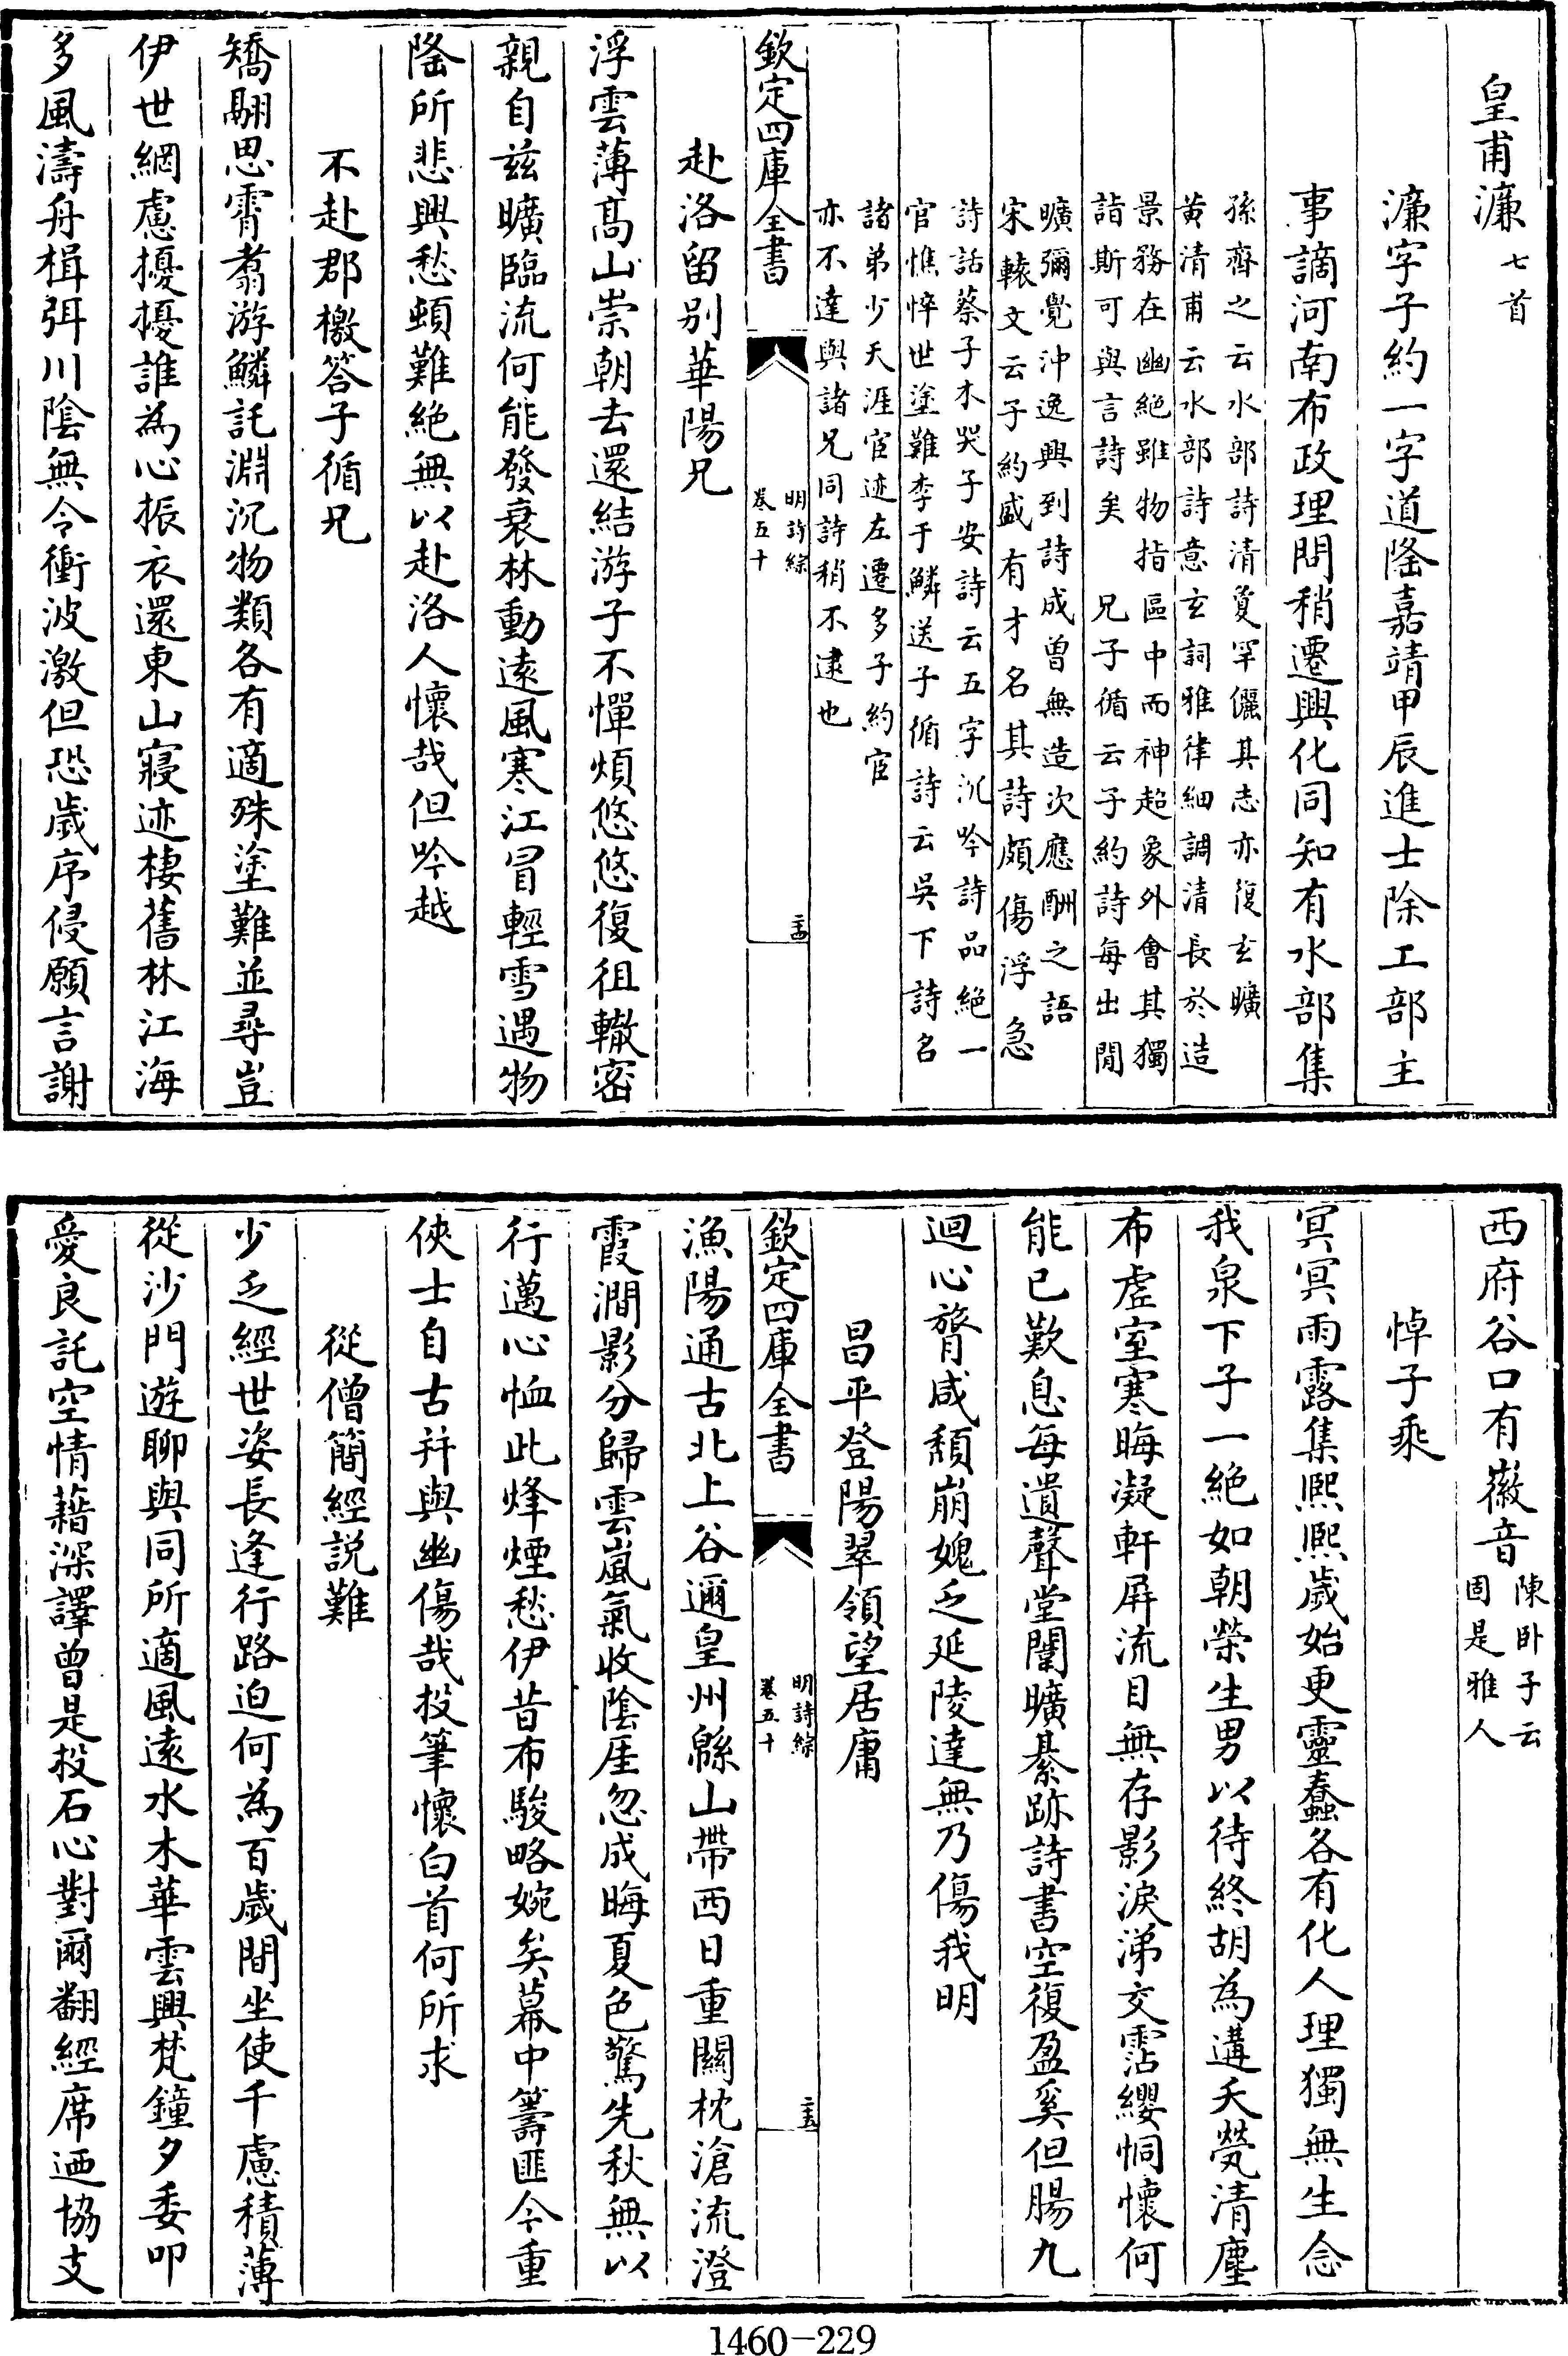 皇甫濂七首
濂字子約一字道隆嘉靖甲辰進士除工部主
事謫河南布政理問稍遷興化同知有水部集
孫齊之云水部詩清夐罕儷其志亦復玄曠
黄清甫云水部詩意玄詞雅律細調清長於造
景務在幽絶雖物指區中而神超象外會其獨
詣斯可與言詩矣 兄子循云子約詩每出閒
曠彌覺沖逸興到詩成曾無造次應酬之語
宋轅文云子約盛有才名其詩頗傷浮急
詩話蔡子木哭子安詩云五字沉吟詩品絶一
官憔悴世塗難李于鱗送子循詩云吳下詩名
諸弟少天涯宦迹左遷多子約宦
亦不達與諸兄同詩稍不逮也
欽定四庫全書
明詩綜
卷五十
二十四
赴洛留别華陽兄
浮雲薄髙山崇朝去還結游子不憚煩悠悠復徂轍密
親自兹曠臨流何能發衰林動逺風寒江冒輕雪遇物
隆所悲興愁頓難絶無以赴洛人懷哉但吟越
不赴郡檄答子循兄
矯翮思霄翥游鱗託淵沉物類各有適殊塗難並尋豈
伊世網慮擾擾誰為心振衣還東山寢迹棲舊林江海
多風濤舟楫弭川陰無令衝波激但恐歲序侵願言謝
西府谷口有徽音陳卧子云
固是雅人
悼子乘
冥冥雨露集熙熙歲始更靈蠢各有化人理獨無生念
我泉下子一絶如朝榮生男以待終胡為遘夭煢清塵
布虚室寒晦凝軒屏流目無存影淚涕交霑纓恫懷何
能已歎息每遺聲堂闈曠綦跡詩書空復盈奚但腸九
迴心膂咸頽崩媿乏延陵達無乃傷我明
昌平登陽翠領望居庸
漁陽通古北上谷邇皇州緜山帶西日重關枕滄流澄
霞澗影分歸雲嵐氣收陰厓忽成晦夏色驚先秋無以
行邁心恤此烽煙愁伊昔布駿略婉矣幕中籌匪今重
俠士自古并與幽傷哉投筆懷白首何所求
從僧簡經説難
少乏經世姿長逢行路迫何為百歲間坐使千慮積薄
從沙門遊聊與同所適風逺水木華雲興梵鐘夕委叩
愛良託空情藉深譯曾是投石心對爾翻經席迺協支
欽定四庫全書
明詩綜
卷五十
二十五
1460-229